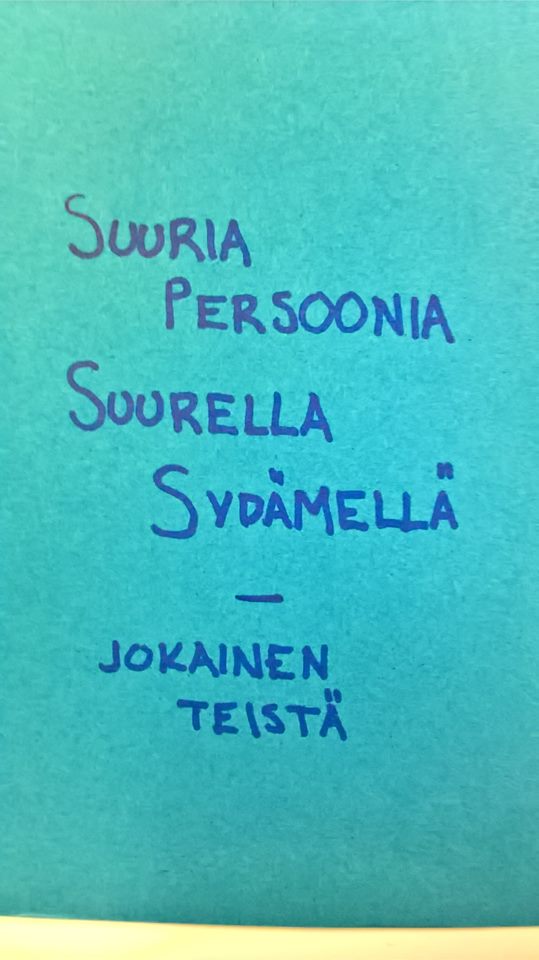 SUURIA
PERSOONIA
SUURELLA
SYDÄMELLÄ
—
JOKAINEN
TEISTÄ